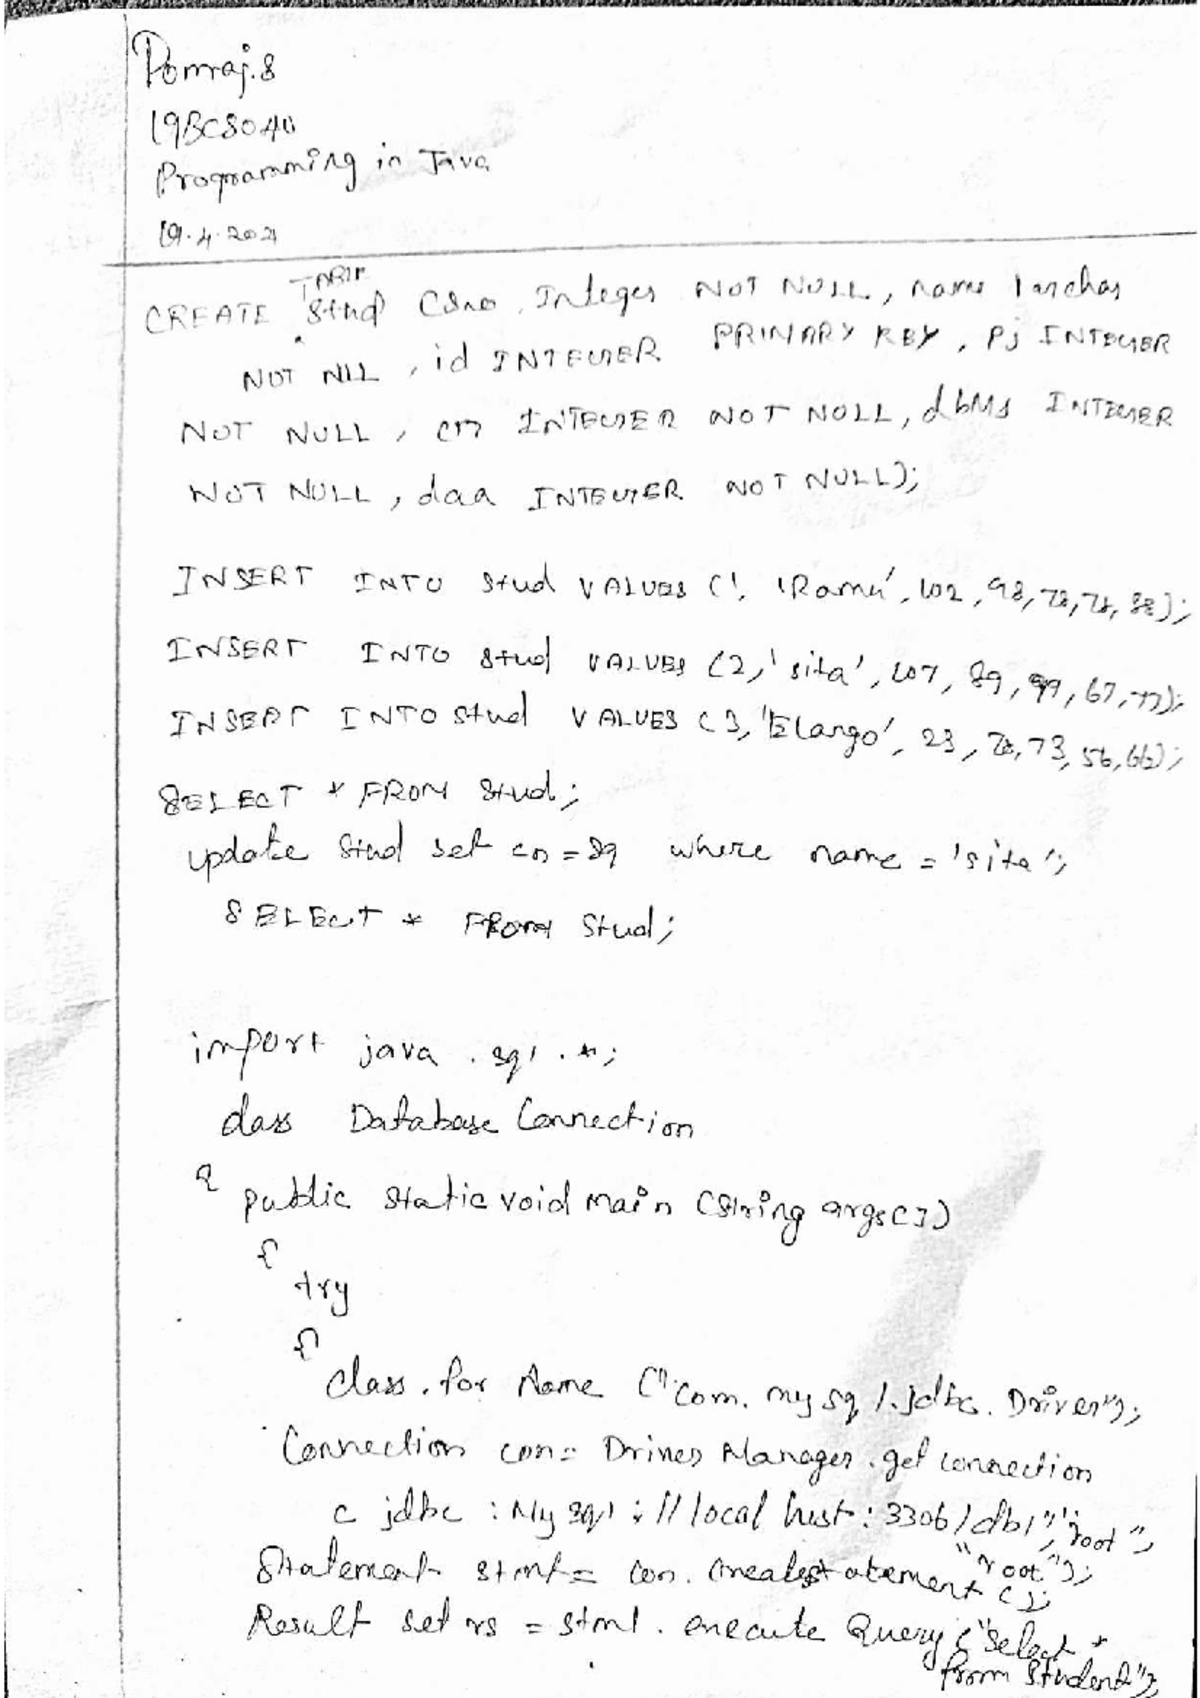 Ponraj.S
19BCS040
Programming in Java
19.4.2021
TABLE
CREATE Stud (Sno Integer NOT NULL, name varchar
NOT NLL, id INTEGER PRIMARY KEY, Pj INTEGER
NOT NULL, cn INTEGER NOT NULL, dbMs INTEGER
NOT NULL, daa INTEGER NOT NULL);
INSERT INTO Stud VALUES (1, 'Ramu', 102, 98, 78, 78, 88);
INSERT INTO Stud VALUES (2, 'sita', 107, 89, 99, 67, 77);
INSERT INTO Stud VALUES (3, 'Elango', 23, 78, 73, 56, 66);
SELECT * FROM Stud;
update Stud set cn = 89 where name = 'sita';
SELECT * FROM Stud;
import java . sql . *;
class Database Connection
{ public static void main (String args[])
{
try
{
class . for Name ("com. my sql . jdbc. Driver");
Connection con = Driver Manager . get connection
( jdbc : My sql : // local host : 3306 / db1", "root",
"root");
Statement stmt = con. Createstatement ();
Result set rs = stmt . execute Query ("Select *
from student");